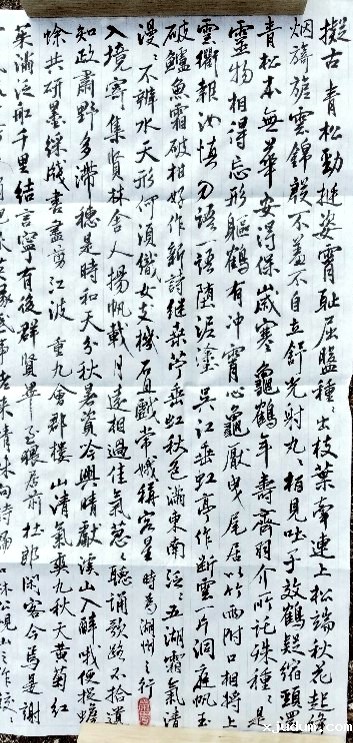 擬古 青松勁挺姿霄恥屈盤種々出枝葉牽連上松端秋花起
烟旖旎雲錦殷不羞不自立舒光射丸々栢見吐子效鶴疑縮頭還
青松本無華安得保歲寒 龜鶴年壽齊羽介所託殊種々是
靈物相得忘形軀鶴有冲霄心龜厭曳尾居以竹兩附口相將上
雲衢報汝慎勿語一語墮泥塗 吳江垂虹亭作 斷雲一片洞庭帆玉
破鱸魚霜破柑好作新詩繼桑苧垂虹秋色滿東南 泛々五湖霜氣清
漫々不辨水天形何須織女支機石且戲常娥稱客星 時為湖州之行
入境寄集賢林舍人 揚帆載月遠相過佳氣蔥々聽誦歌路不拾遺
知政肅野多滯穗是時和天分秋暑資吟興晴獻溪山入醉哦便捉蟾
蜍共研墨綵牋書盡剪江波 重九會郡樓 山清氣爽九秋天黃菊紅
茱滿泛船千里結言寧有後群賢畢至猥居前杜郎閑客今焉是謝
x.judum.com